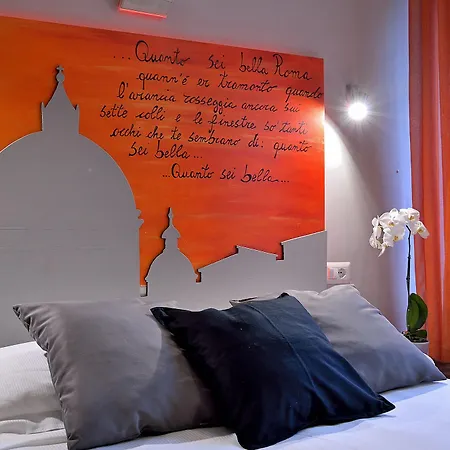 ...Quanto sei bella Roma
quann'è er tramonto quando
l'arancia rosseggia ancora sui
sette colli e le finestre so' tanti
occhi che te sembrano di: quanto
sei bella...
...Quanto sei bella...